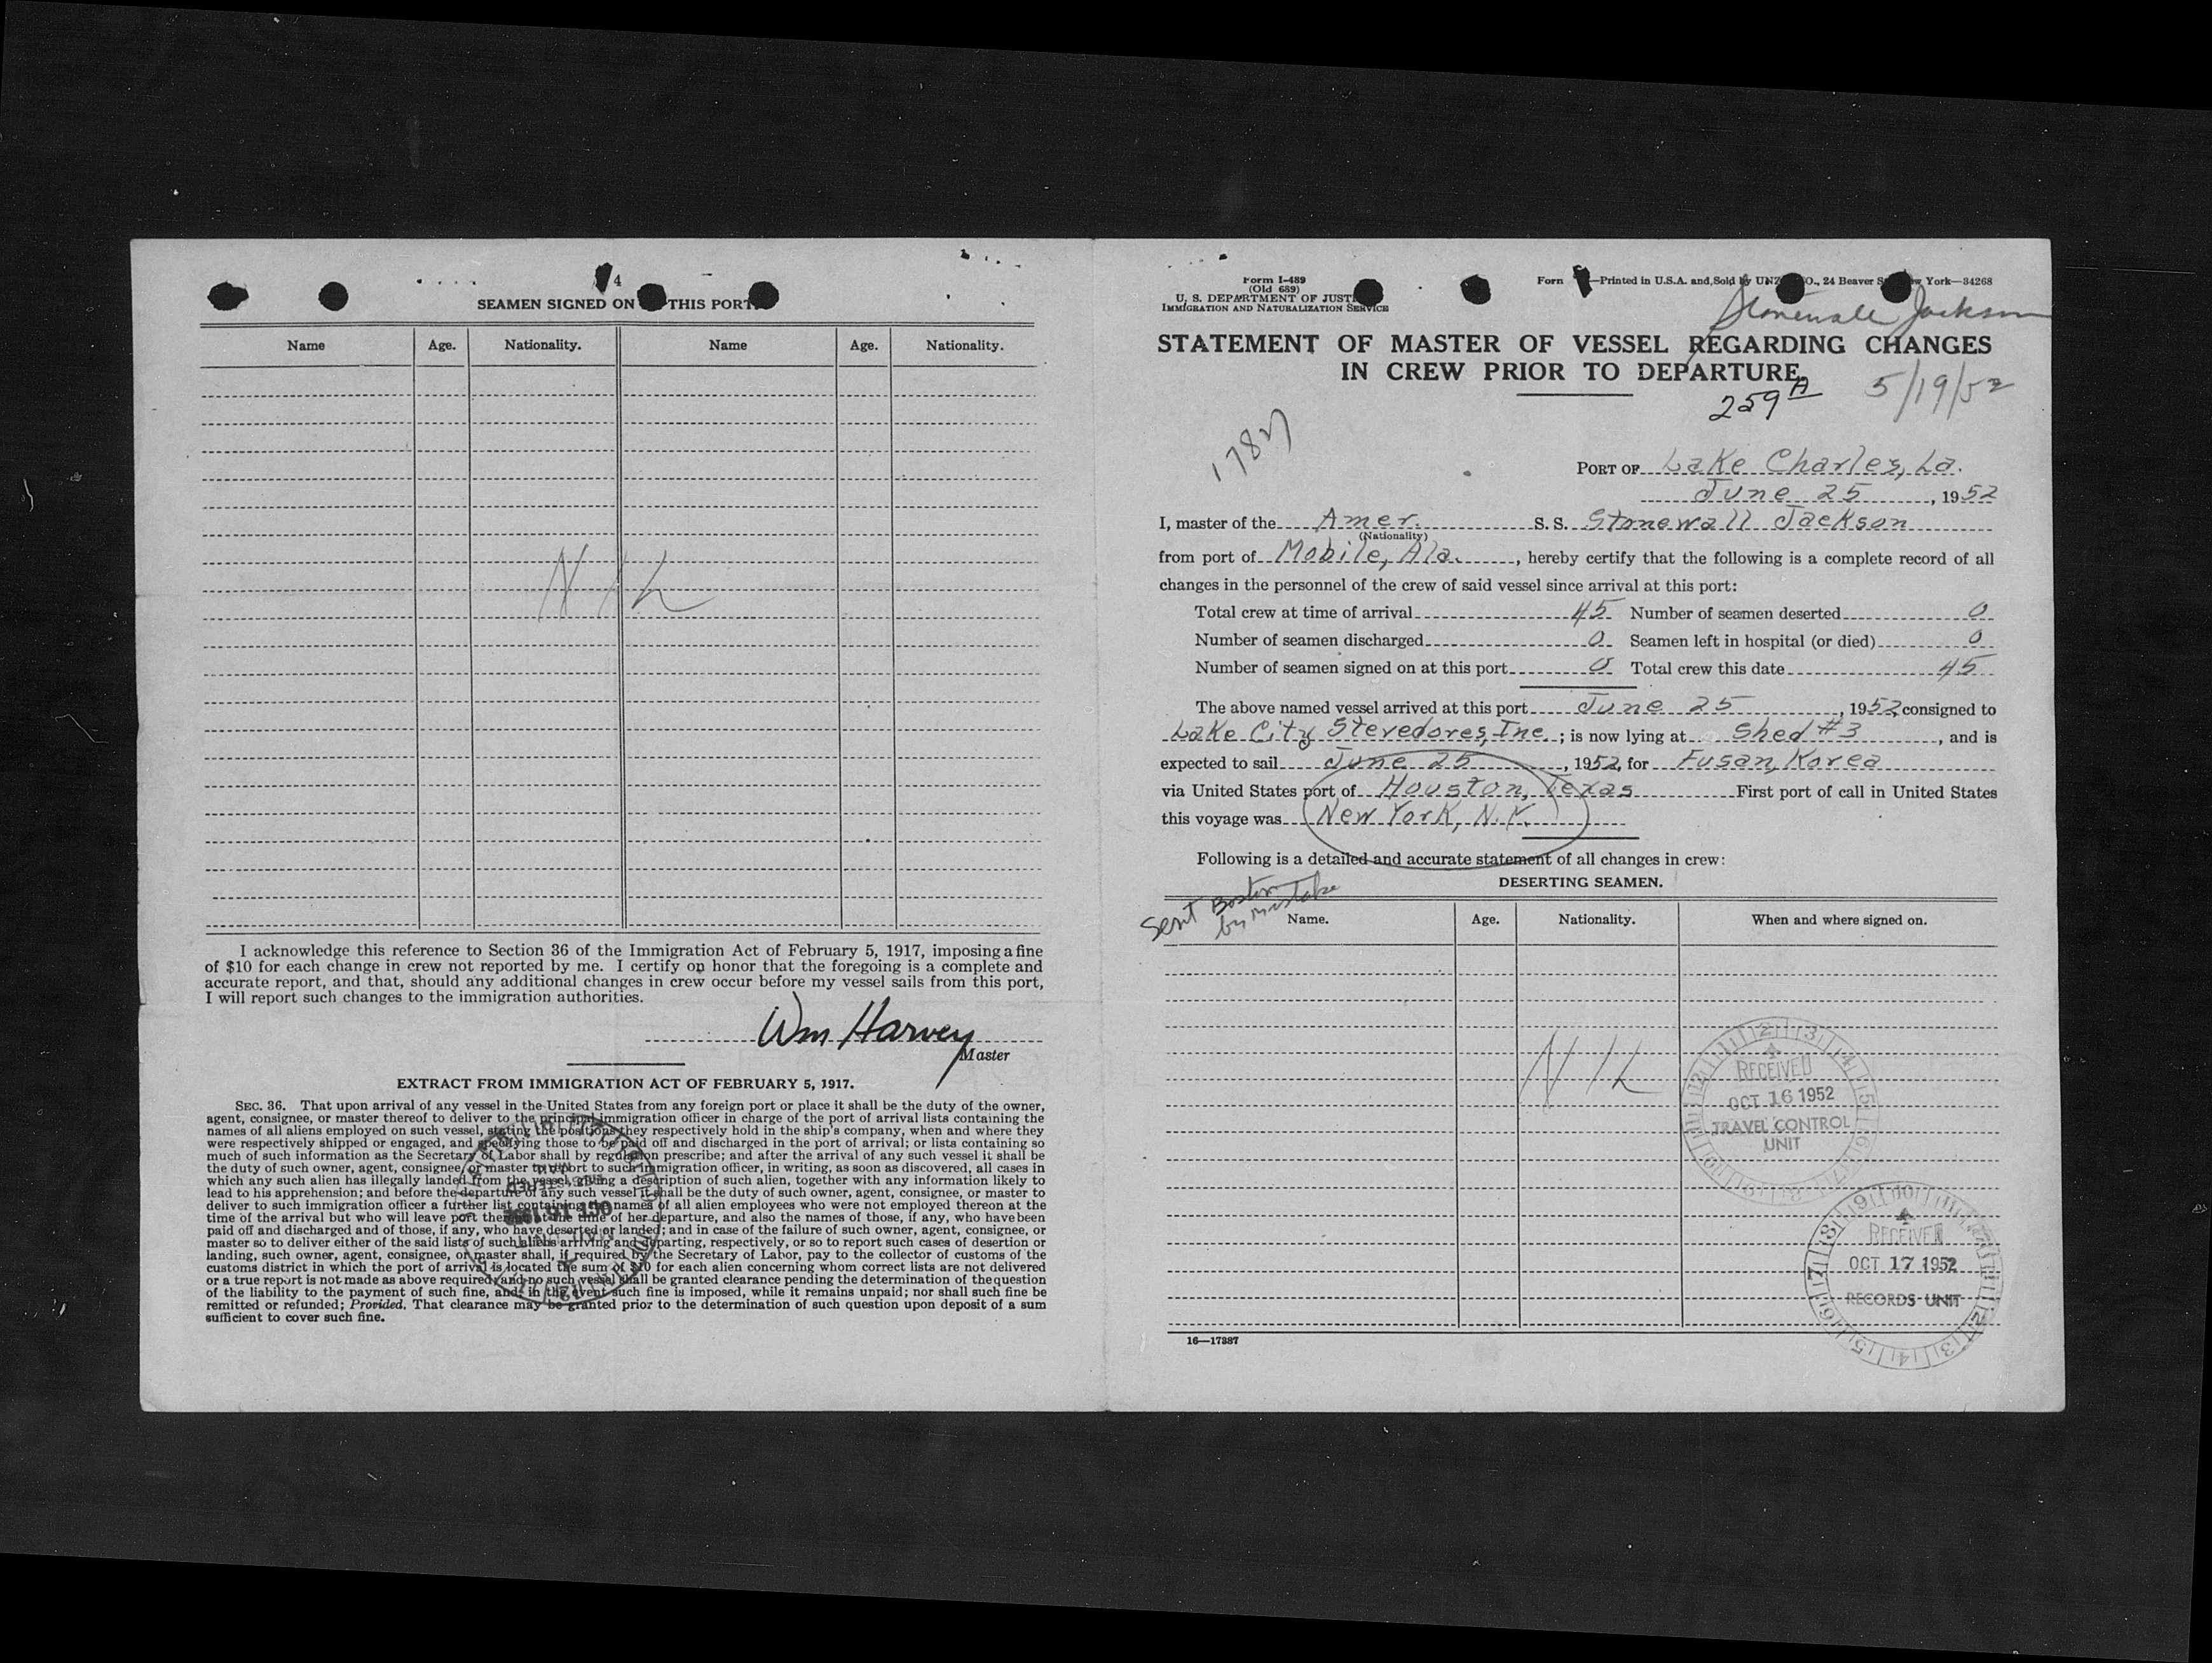 4
SEAMEN SIGNED ON THIS PORT
Name Age. Nationality. Name Age. Nationality.
NIL
I acknowledge this reference to Section 36 of the Immigration Act of February 5, 1917, imposing a fine
of $10 for each change in crew not reported by me. I certify on honor that the foregoing is a complete and
accurate report, and that, should any additional changes in crew occur before my vessel sails from this port,
I will report such changes to the immigration authorities.
Wm Harvey
Master
EXTRACT FROM IMMIGRATION ACT OF FEBRUARY 5, 1917.
SEC. 36. That upon arrival of any vessel in the United States from any foreign port or place it shall be the duty of the owner,
agent, consignee, or master thereof to deliver to the principal immigration officer in charge of the port of arrival lists containing the
names of all aliens employed on such vessel, stating the positions they respectively hold in the ship's company, when and where they
were respectively shipped or engaged, and specifying those to be paid off and discharged in the port of arrival; or lists containing so
much of such information as the Secretary of Labor shall by regulation prescribe; and after the arrival of any such vessel it shall be
the duty of such owner, agent, consignee, or master to report to such immigration officer, in writing, as soon as discovered, all cases in
which any such alien has illegally landed from the vessel, giving a description of such alien, together with any information likely to
lead to his apprehension; and before the departure of any such vessel it shall be the duty of such owner, agent, consignee, or master to
deliver to such immigration officer a further list containing the names of all alien employees who were not employed thereon at the
time of the arrival but who will leave port thereon at the time of her departure, and also the names of those, if any, who have been
paid off and discharged and of those, if any, who have deserted or landed; and in case of the failure of such owner, agent, consignee, or
master so to deliver either of the said lists of such aliens arriving and departing, respectively, or so to report such cases of desertion or
landing, such owner, agent, consignee, or master shall, if required by the Secretary of Labor, pay to the collector of customs of the
customs district in which the port of arrival is located the sum of $10 for each alien concerning whom correct lists are not delivered
or a true report is not made as above required; and no such vessel shall be granted clearance pending the determination of the question
of the liability to the payment of such fine, and, in the event such fine is imposed, while it remains unpaid; nor shall such fine be
remitted or refunded; Provided, That clearance may be granted prior to the determination of such question upon deposit of a sum
sufficient to cover such fine.
Form I-489
(Old 689)
U. S. DEPARTMENT OF JUST
IMMIGRATION AND NATURALIZATION SERVICE
Form —Printed in U.S.A. and Sold by UNZ O., 24 Beaver S w York—34268
Stonewall Jackson
STATEMENT OF MASTER OF VESSEL REGARDING CHANGES
IN CREW PRIOR TO DEPARTURE
259 A 5/19/52
PORT OF Lake Charles, La.
June 25, 1952
I, master of the Amer. S. S. Stonewall Jackson
(Nationality)
from port of Mobile, Ala., hereby certify that the following is a complete record of all
changes in the personnel of the crew of said vessel since arrival at this port:
Total crew at time of arrival 45 Number of seamen deserted 0
Number of seamen discharged 0 Seamen left in hospital (or died) 0
Number of seamen signed on at this port 0 Total crew this date 45
The above named vessel arrived at this port June 25, 1952, consigned to
Lake City Stevedores, Inc.; is now lying at Shed #3, and is
expected to sail June 25, 1952, for Fusan, Korea
via United States port of Houston, Texas First port of call in United States
this voyage was New York, N.Y.
Following is a detailed and accurate statement of all changes in crew:
DESERTING SEAMEN.
Sent Boston
by mistake
Name. Age. Nationality. When and where signed on.
NIL
RECEIVED
OCT 16 1952
TRAVEL CONTROL
UNIT
RECEIVED
OCT 17 1952
RECORDS UNIT
16—17387